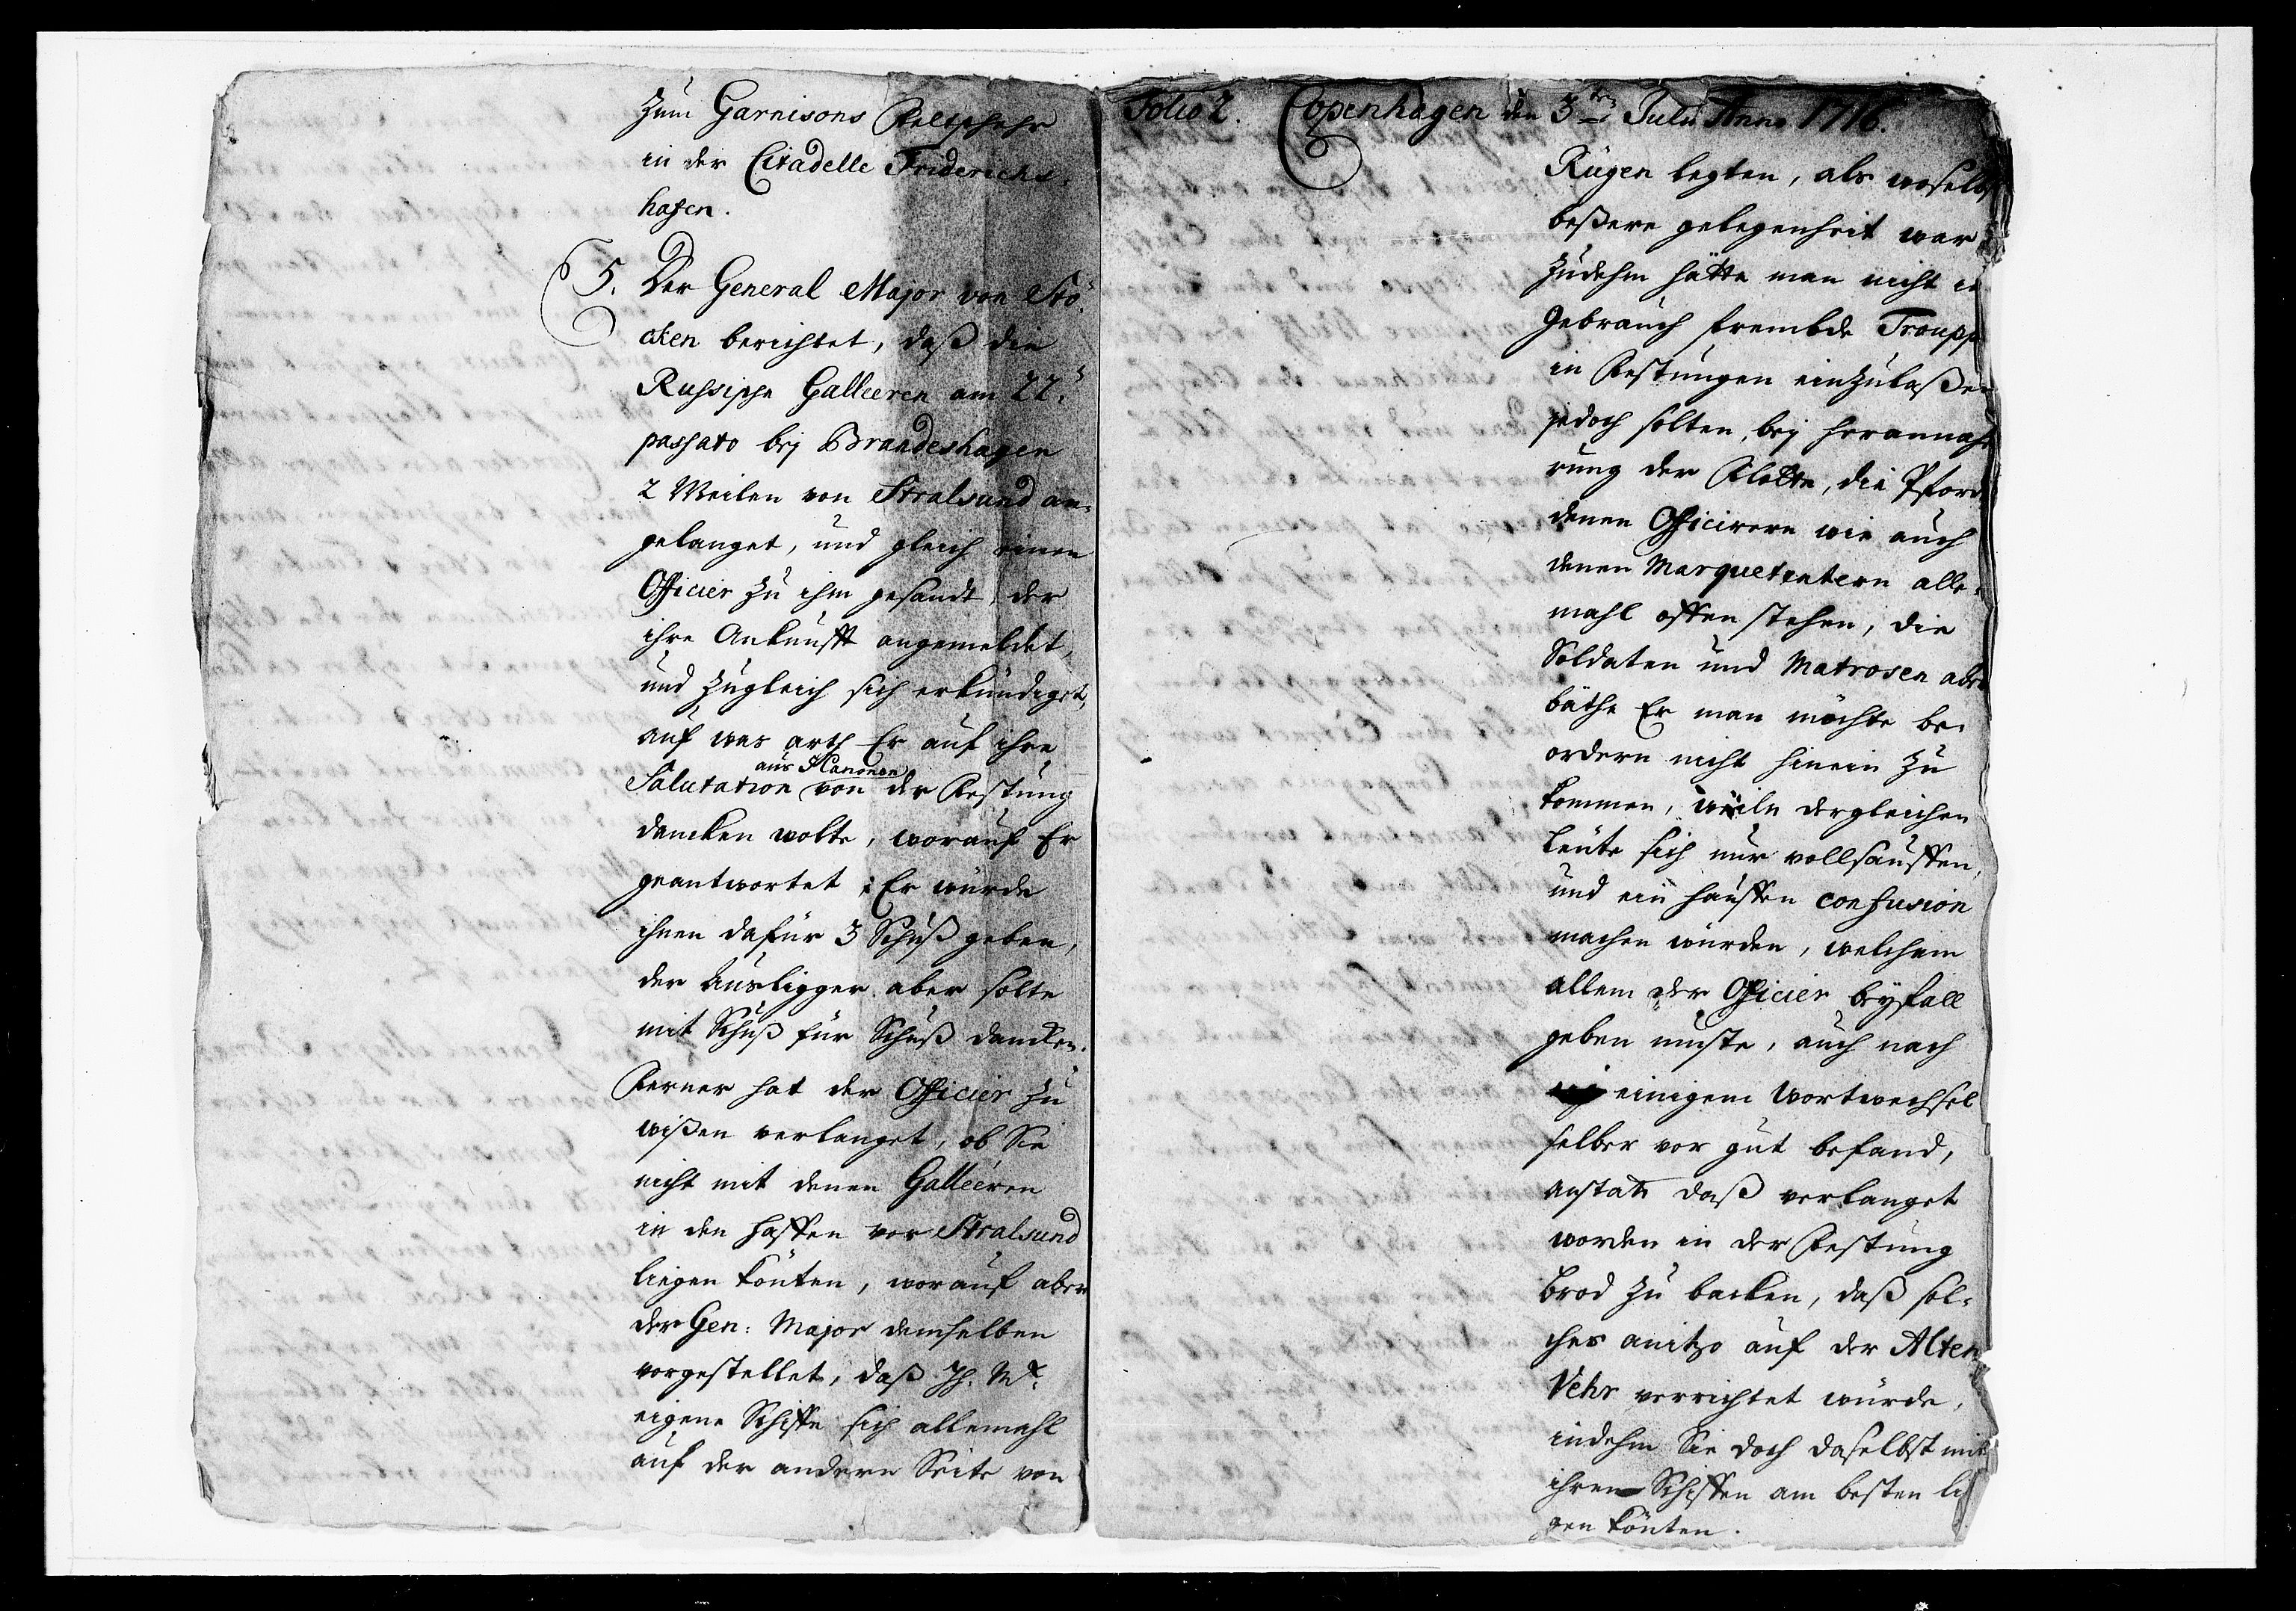 zum Garnisons Feltschehr
in der Citadelle Friderichs-
hafen.
5. Der General Major von Stö-
cken berichtet, daß die
Russische Galleeren am 22.
passato bej Brandeshagen
2 Meilen von Stralsund an-
gelanget, und gleich einen
Officier zu ihm gesandt, der
ihre Ankunfft angemeldet,
und zugleich sich erkundiget,
auf was arth Er auf ihre
aus Kanonen
Salutation von der Festung
dancken wolte, worauf Er
geantwortet: Er würde
ihnen dafür 3 Schuß geben,
der Ausligger aber solte
mit Schuß für Schuß dancken.
Ferner hat der Officier zu
wißen verlanget, ob Sie
nicht mit denen Galléeren
in den Haffen vor Stralsund
liegen könten, worauf aber
der Gen: Major demselben
vorgestellet, daß Ih. Mt.
eigene Schiffe sich allemahl
auf der andern Seite von
Folio 2. Copenhagen den 3ten Julii Anno 1716.
Rügen legten, als woselbst
beßere gelegenheit war
Zudehm hätte man nicht in
Gebrauch frembde Troupp
in Festungen einzulaßen
jedoch solten, bej herannah
rung der Flotte, die Pfor
denen Officirern wie auch
denen Marquetentern alle-
mahl offen stehen, die
Soldaten und Matrosen aber
bäthe Er man möchte be-
ordern nicht hinein zu
kommen, weiln dergleichen
Leute sich nur vollsauffen,
und ein hauffen confusion
machen würden, welchem
allem der Officier beyfall
geben muste, auch nach
einigem Wortwechsel
selber vor gut befand,
anstatt daß verlanget
worden in der Festung
Brod zu backen, daß sol-
ches anitzo auf der Alten
Vehr verrichtet würde,
indehm Sie doch daselbst mit
ihren Schiffen am besten li
gen könten.